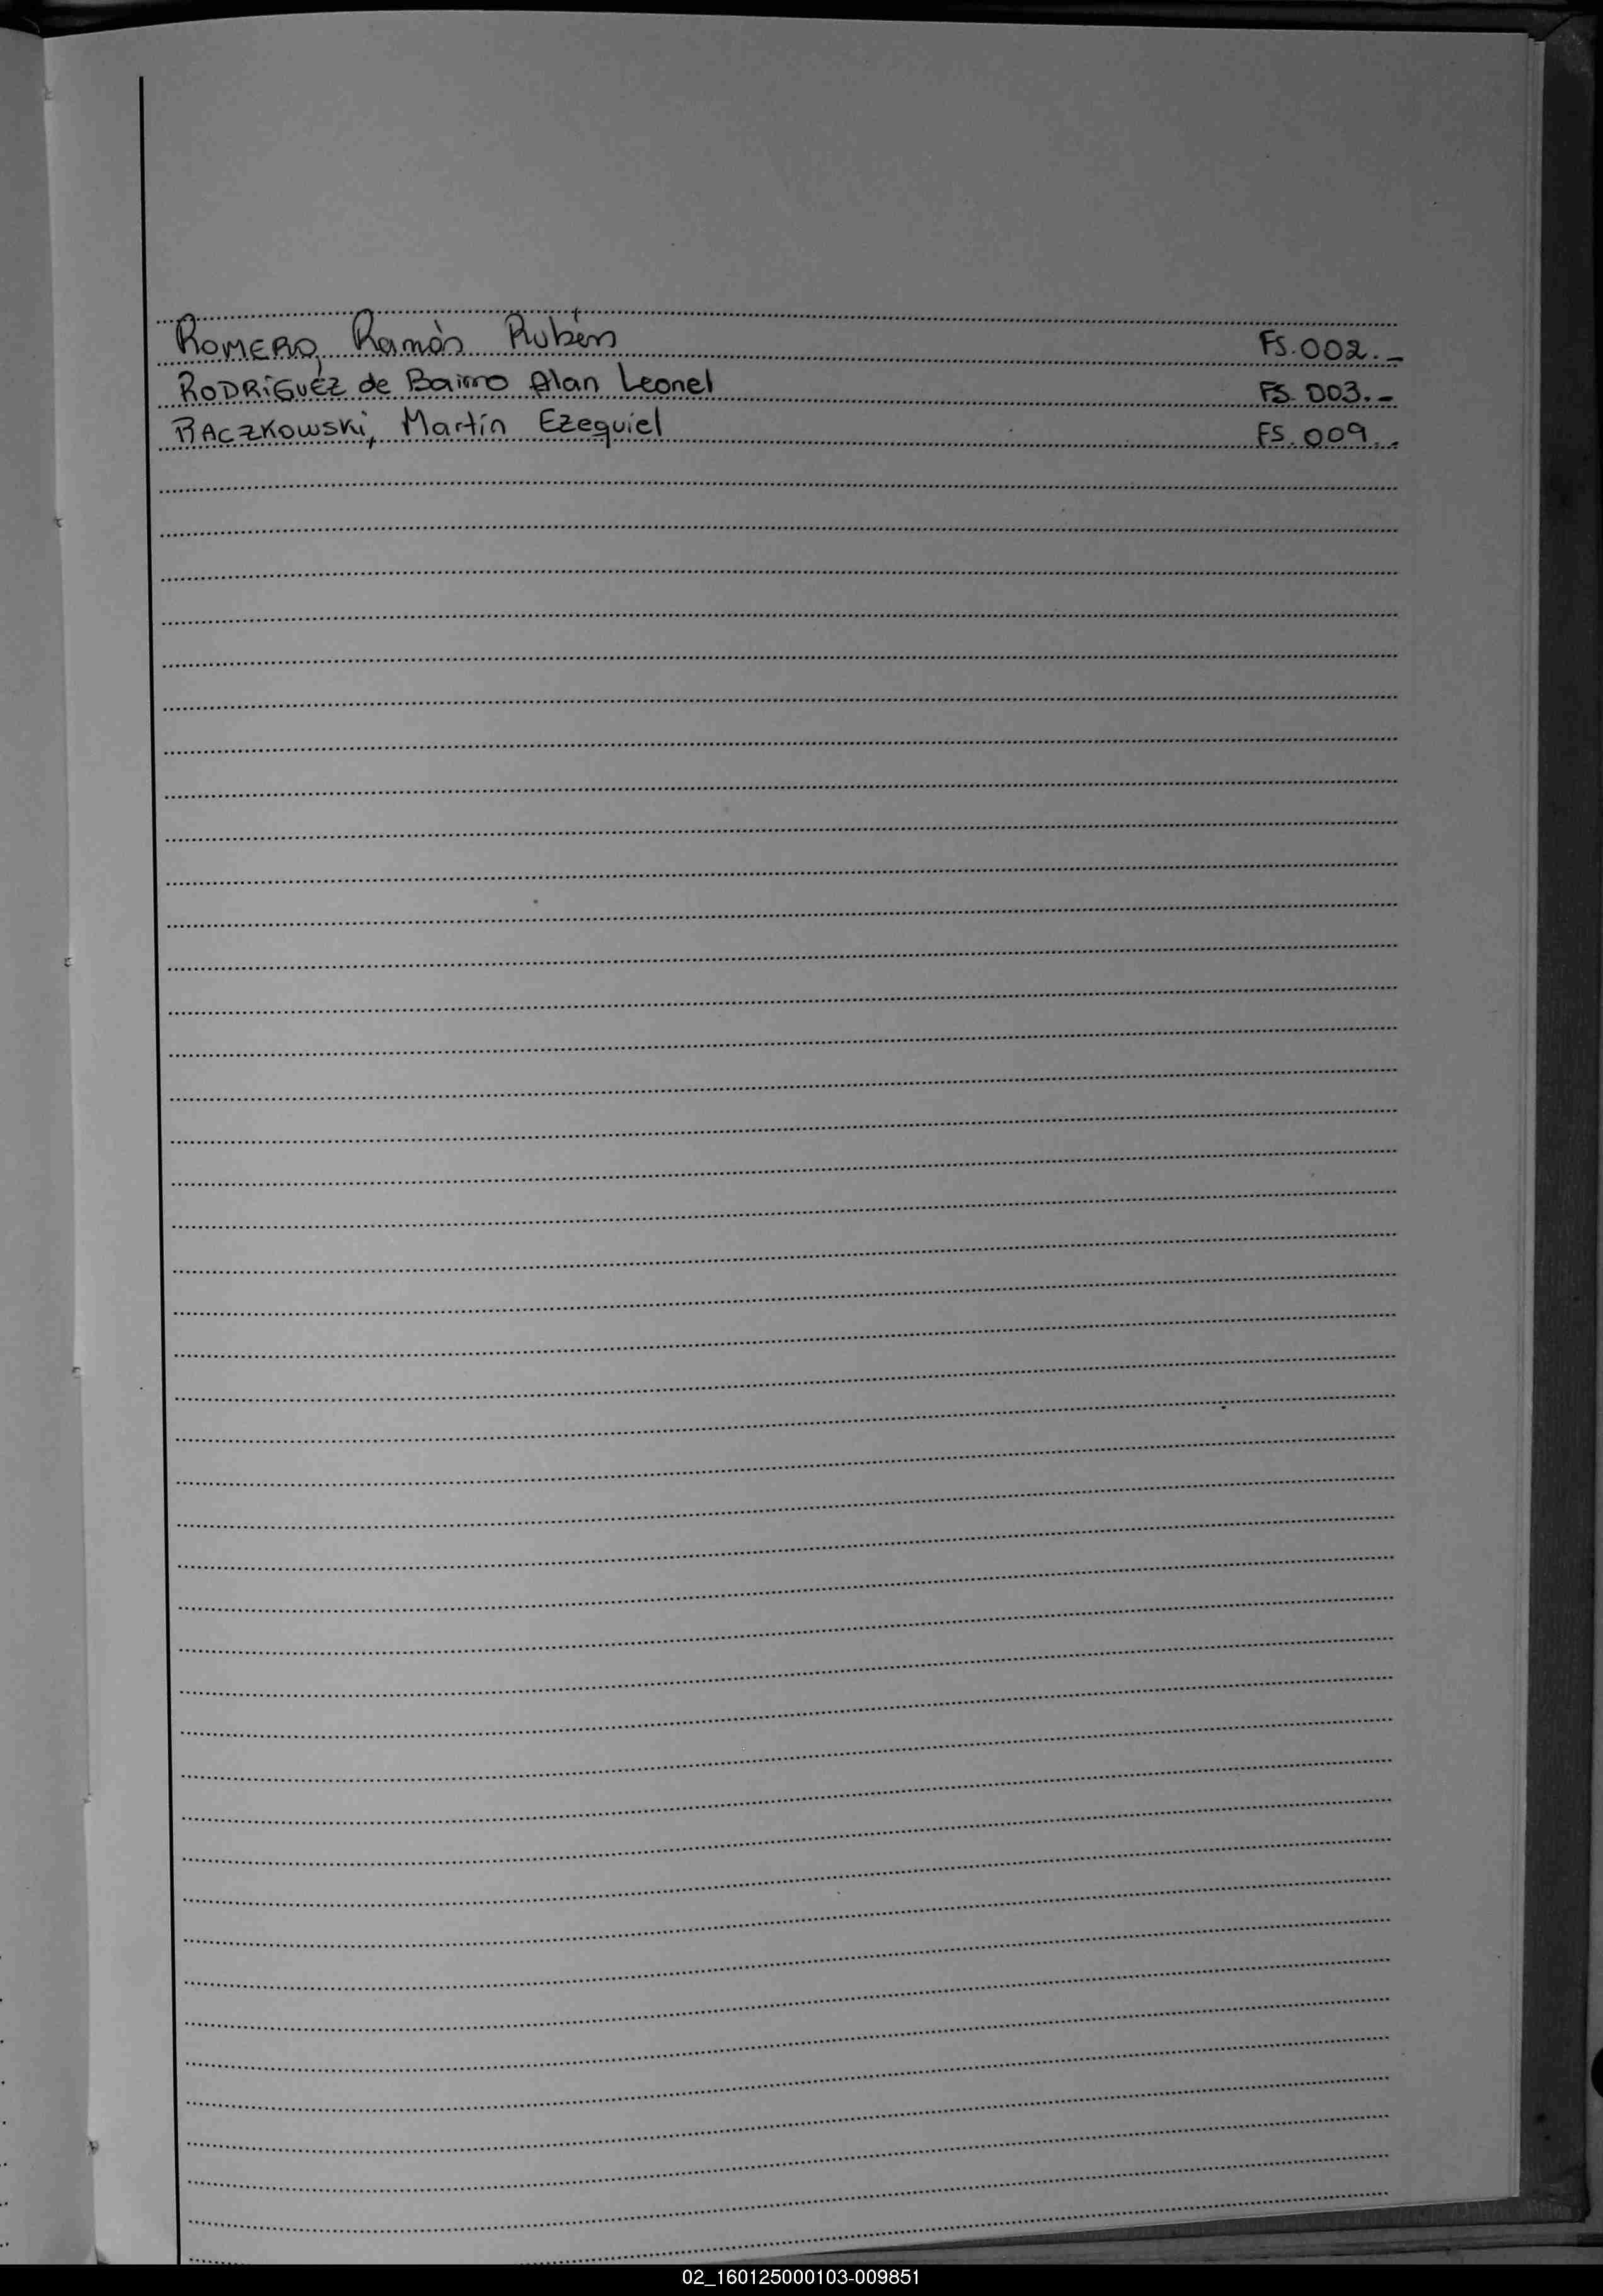 ROMERO, Ramón Rubén FS. 002.-
RODRÍGUEZ de Bairro Alan Leonel FS. 003.-
RACZKOWSKI, Martín Ezequiel FS. 009.-
02_160125000103-009851